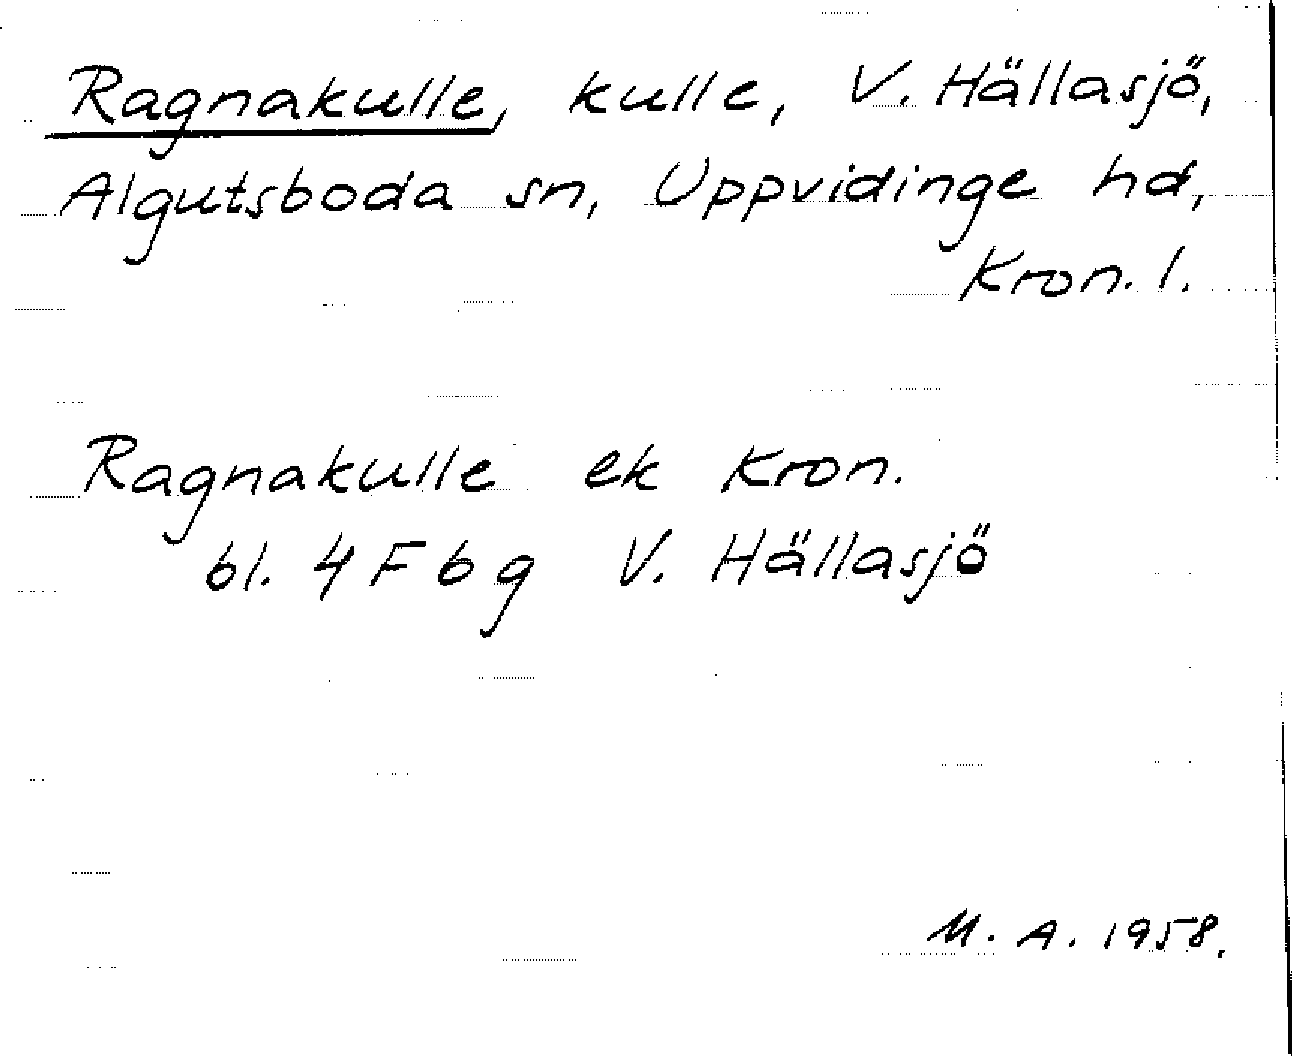 Ragnakulle, kulle, V. Hällasjö,
Algutsboda sn, Uppvidinge hd,
Kron. l.
Ragnakulle ek Kron.
bl. 4 F b g V. Hällasjö
M. A. 1958.